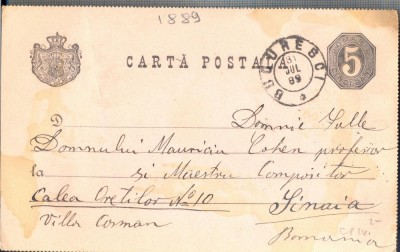 1889
CARTĂ POSTA
5
BUCURESCI
JUL
89
D
Domniei Salle
Domnului Mauriciu Cohen profesor
la si Maestru Compositor
Calea No 10 Sinaia
Villa Romania